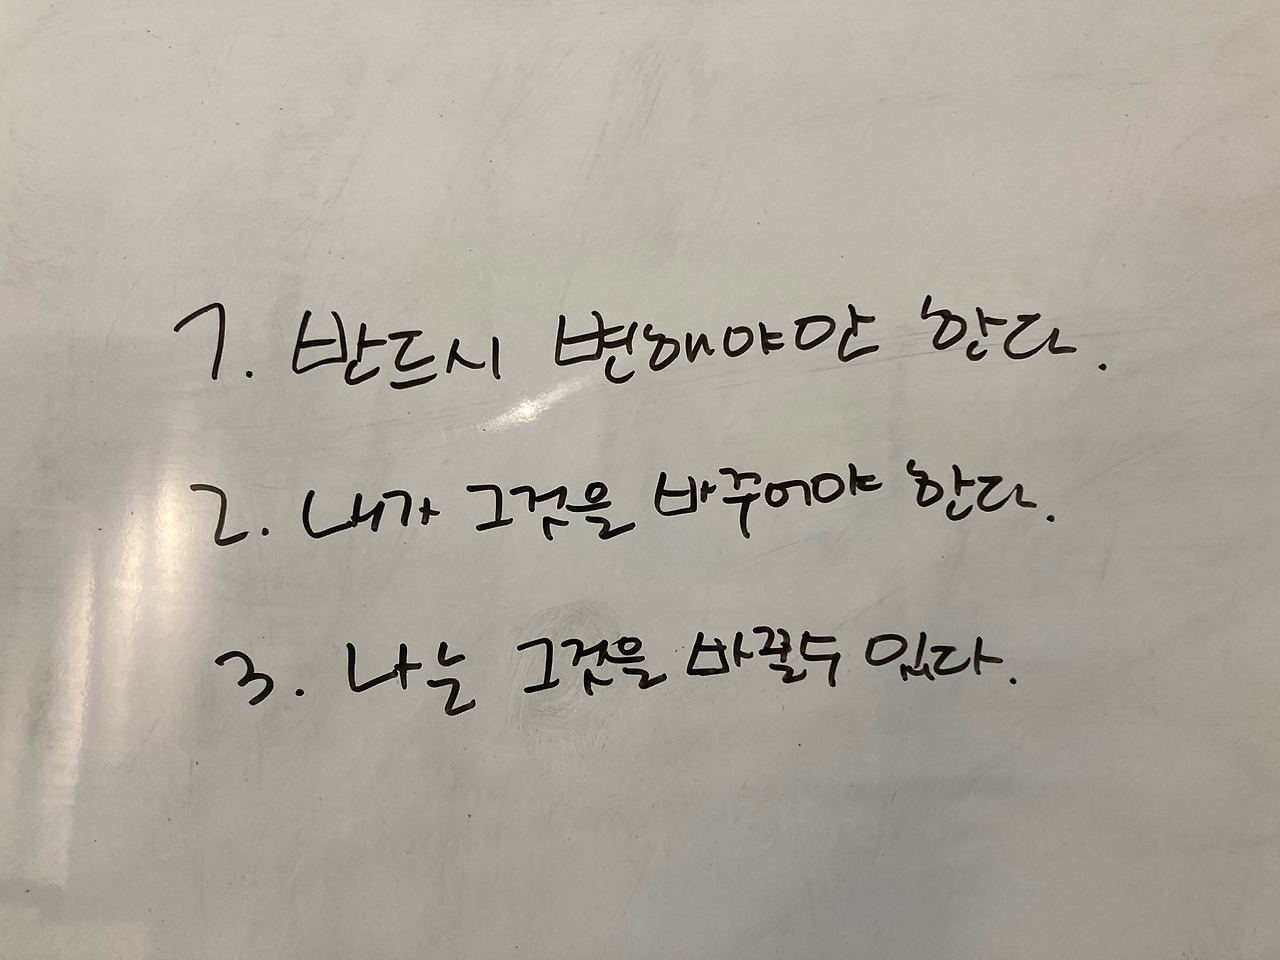 1. 반드시 변해야만 한다.
2. 내가 그것을 바꾸어야 한다.
3. 나는 그것을 바꿀수 있다.